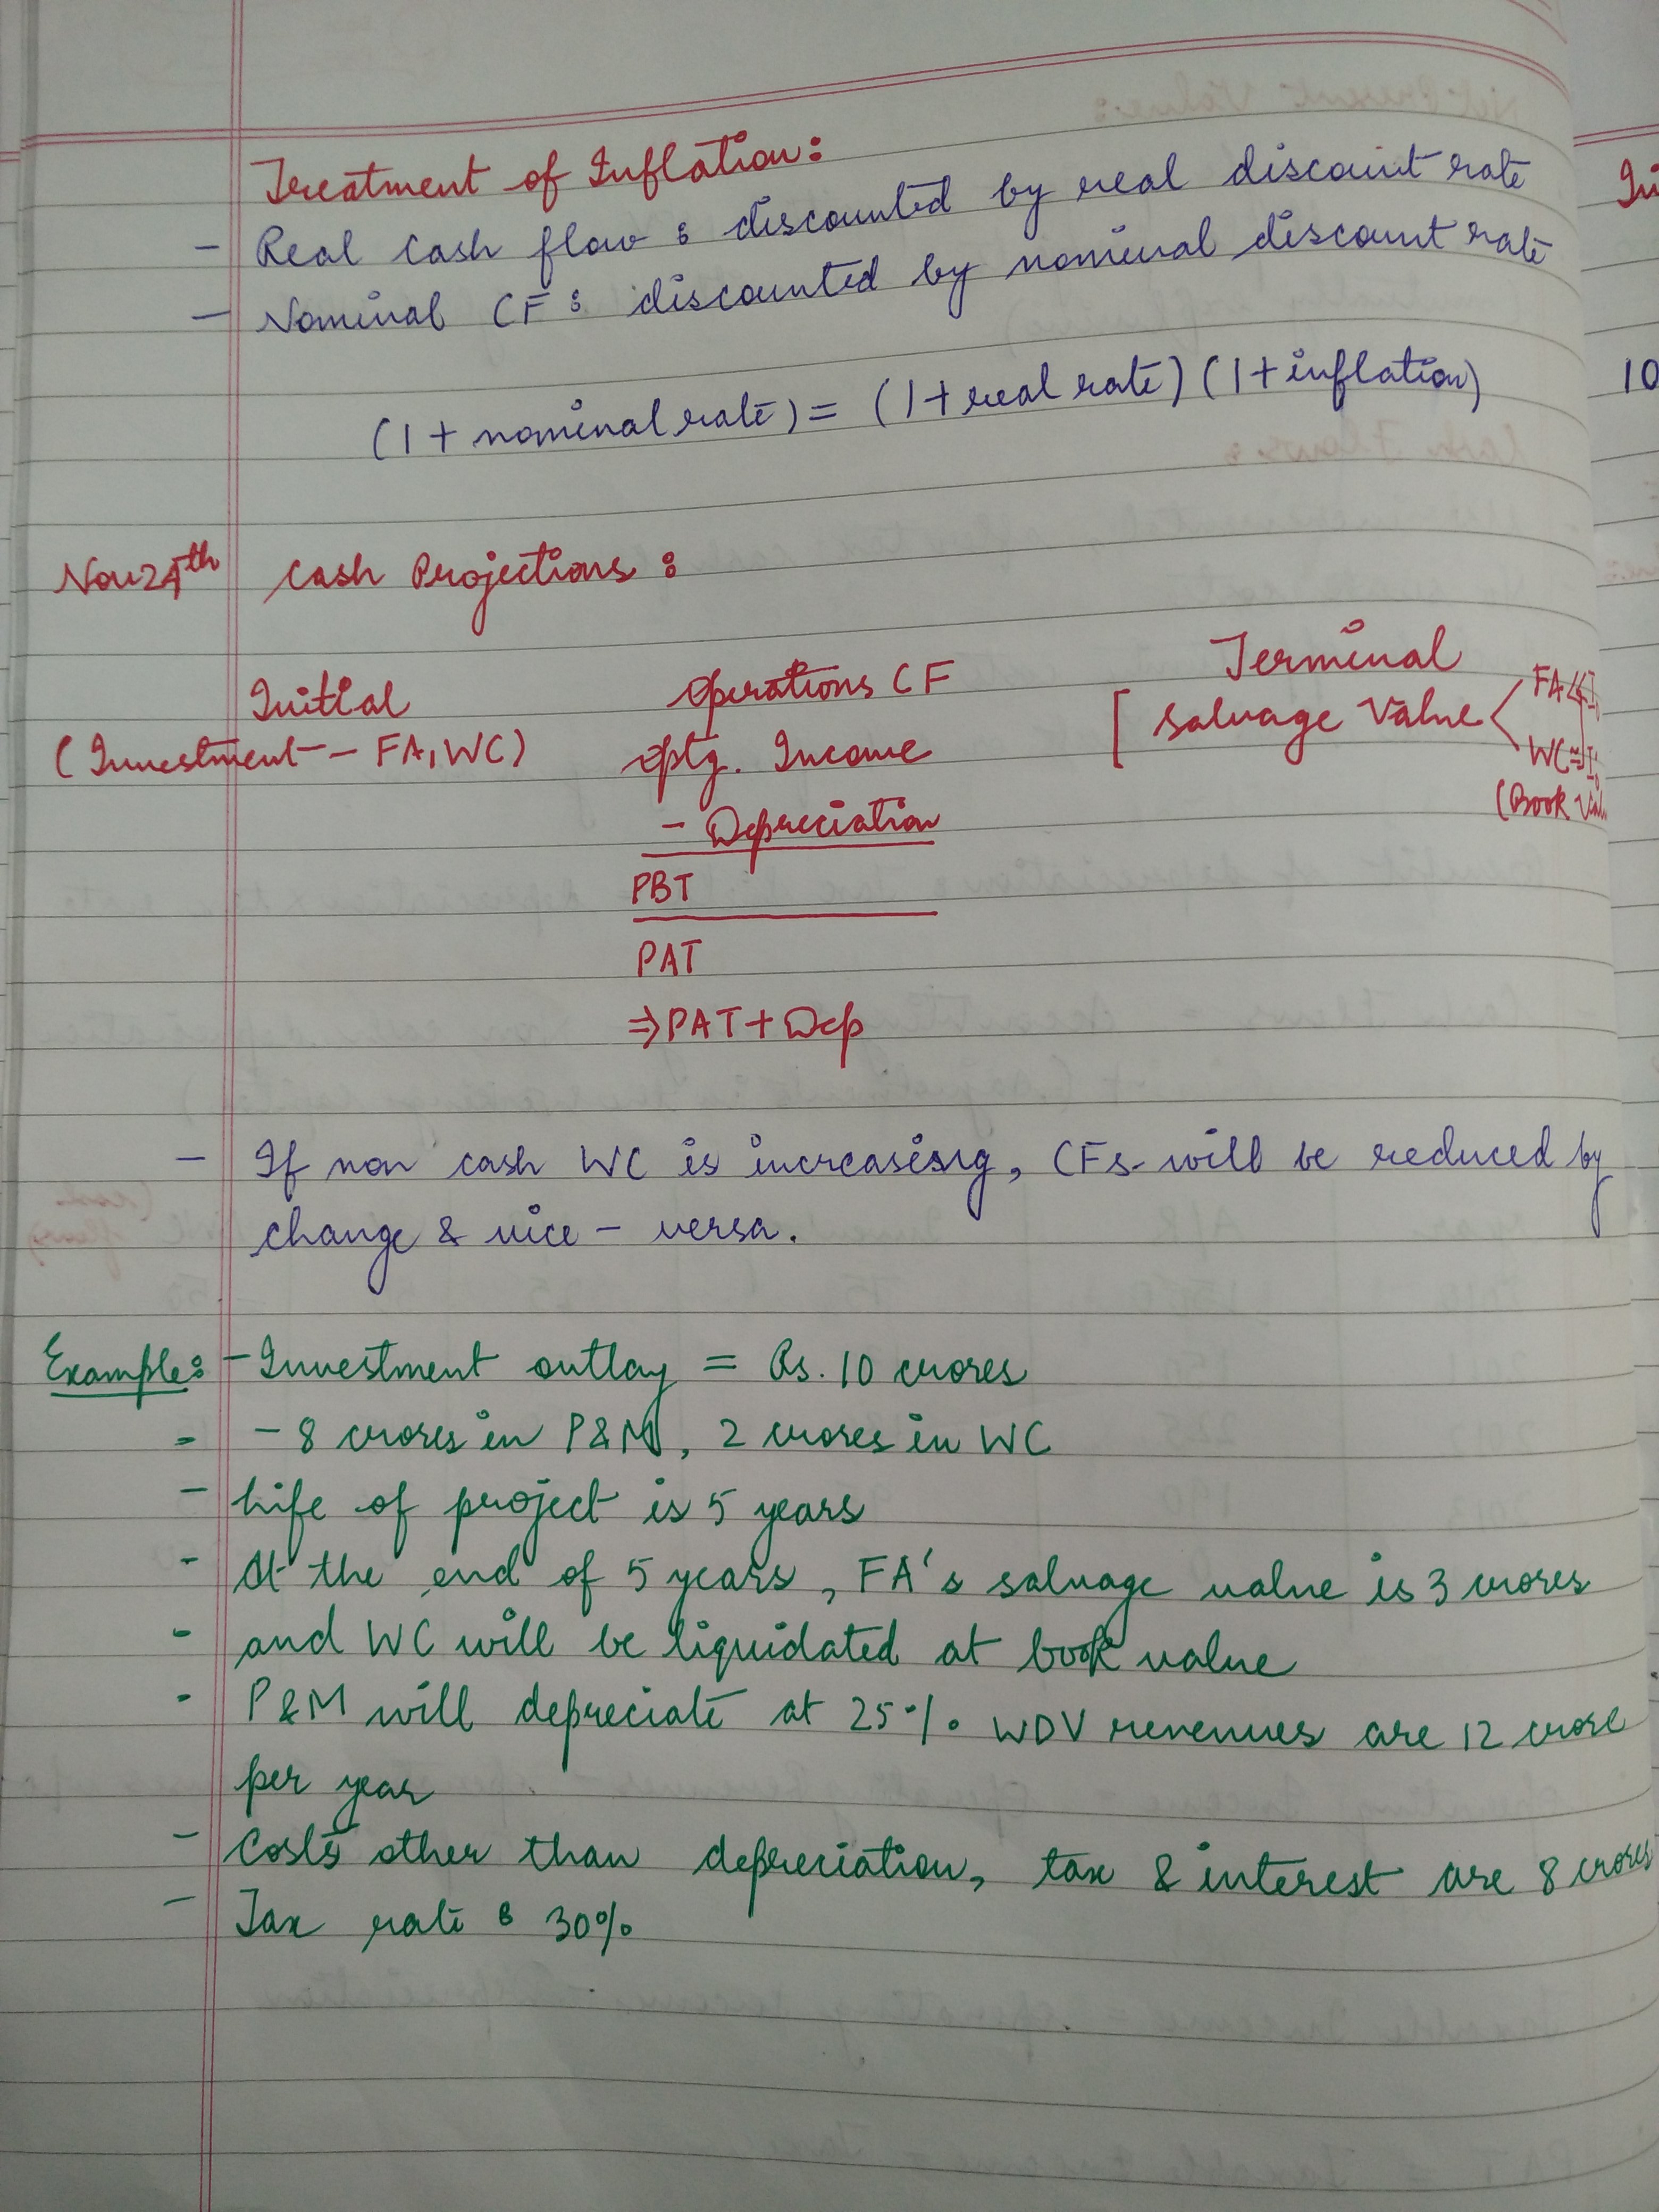 Treatment of Inflation:
- Real cash flow : discounted by real discount rate
- Nominal CF : discounted by nominal discount rate
(1 + nominal rate) = (1 + real rate) (1 + inflation)
10
Nov 24th Cash Projections :
Initial
(Investment - FA, WC)
Operations CF
Optg. Income
- Depreciation
PBT
PAT
⇒ PAT + Dep
Terminal
[ Salvage Value < FA
WC
(Book
- If non cash WC is increasing, CFs will be reduced by
change & vice - versa.
Example: - Investment outlay = Rs. 10 crores
- - 8 crores in P&M, 2 crores in WC
- Life of project is 5 years
- At the end of 5 years, FA's salvage value is 3 crores
- and WC will be liquidated at book value
- P&M will depreciate at 25% WDV revenues are 12 crore
per year
- Costs other than depreciation, tax & interest are 8 crores
- Tax rate : 30%